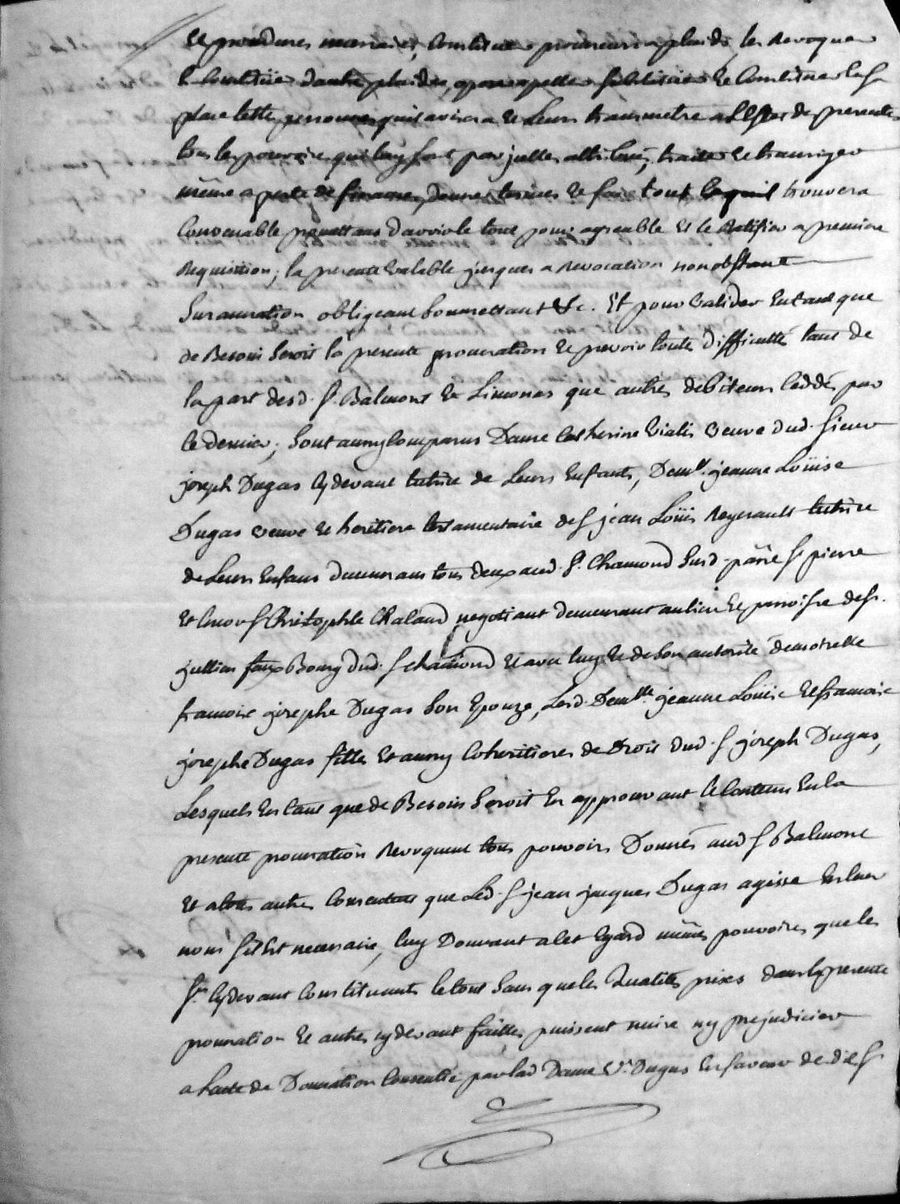 et procedures necessaires, constituer procureurs a plaids les Revoquer
et constituer d'autres plaider, opposer appeller substituer et constituer en sa
place telles personnes qu'il avisera et Leurs transmettre a l'effet des presentes
tous les pouvoirs qui luy sont par jcelles attribués, traiter et transiger
même a perte de finance, donner termes et faire tout ce qu'il trouvera
Convenable promettans d'avoir le tout pour agreable et le Ratifier a premiere
Requisition, la presente valable jusques a Revocation nonobstant
Surannation obligeant soumettant &c. Et pour valider En tant que
de Besoin Seroit la presente procuration et prevoir toute difficulté tant de
la part desd. Srs Balmont et Limonas que autres debiteurs Ceddés par
Ce dernier, Sont aussy Comparus Dame Catherine Vialis veuve dud. Sieur
joseph Dugas cy devant tutrice de Leurs Enfants, Demlle. jeanne Loüise
Dugas veuve et heritiere testamentaire de Sr jean Loüis Reynault tutrice
de Leurs Enfans demeurans tous deux aud. St. Chamond Susd. parse St pierre
Et Encor Sr Christophle Chaland negotiant demeurant au lieu et parroisse de St.
jullien faux Bourg dud. St chamond et avec luy et de son autorité demoiselle
francoise josephe Dugas Son Epouze, Lesd. Demlles jeanne Loüise et francoise
josephe Dugas filles et aussy Coheritieres de Droit dud. Sr joseph Dugas,
Lesquels En tant que de Besoin Seroit En approuvant le Contenu En la
presente procuration Revoquent tous pouvoirs Donnés aud Sr Balmont
Et a tous autres Consentent que Led. Sr jean jacques Dugas agisse En leur
nom S'il Est necessaire, luy Donnant a cet Egard mêmes pouvoirs que les
Srs cy devant Constituants le tout Sans que les Qualittés prises dans la presente
procuration et autres cy devant faittes puissent nuire ny prejudicier
a l'acte de Donnation Consentie par lad Dame Ve. Dugas En faveur de d. Sr